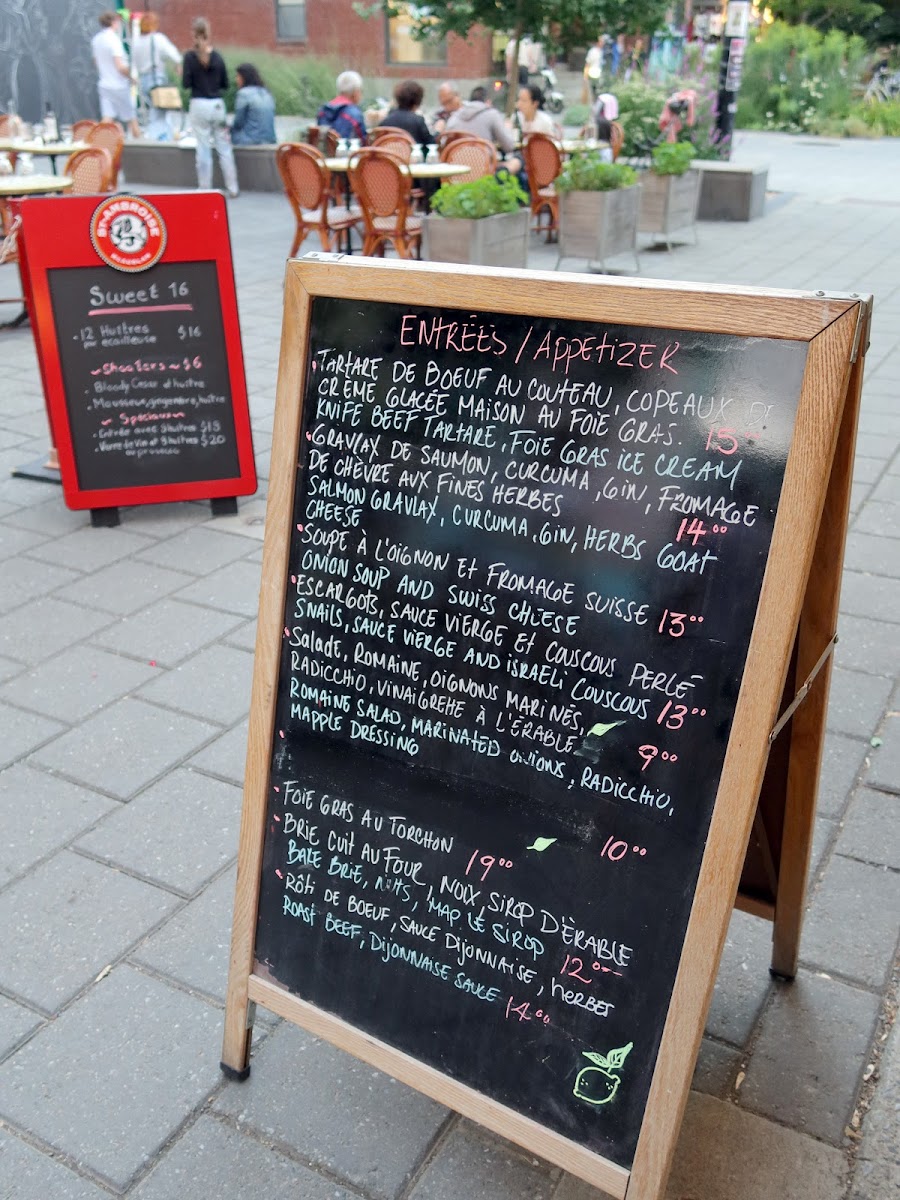 ST-AMBROISE
Sweet 16
- 12 Huîtres $16
par ecailleuse
~Shooters~ $6
- Bloody Cesar et huitre
- Mousseux, gingembre, huitre
~ Spéciaux ~
- Entrée avec 3 huîtres $19
- Verre de Vin et 9 huîtres $20
ou prosecco
ENTRÉES / APPETIZER
TARTARE DE BOEUF AU COUTEAU, COPEAUX DE
CRÈME GLACÉE MAISON AU FOIE GRAS. 15
KNIFE BEEF TARTARE, FOIE GRAS ICE CREAM
GRAVLAX DE SAUMON, CURCUMA, GIN, FROMAGE
DE CHÈVRE AUX FINES HERBES 14 00
SALMON GRAVLAX, CURCUMA, GIN, HERBS GOAT
CHEESE
SOUPE À L'OIGNON ET FROMAGE SUISSE 13 00
ONION SOUP AND SWISS CHEESE
ESCARGOTS, SAUCE VIERGE ET COUSCOUS PERLÉ
SNAILS, SAUCE VIERGE AND ISRAELI COUSCOUS 13 00
Salade, ROMAINE, OIGNONS MARINÉS,
RADICCHIO, VINAIGREHE À L'ÉRABLE 9 00
ROMAINE SALAD, MARINATED ONIONS, RADICCHIO,
MAPPLE DRESSING
10 00
FOIE GRAS AU TORCHON 19 00
BRIE CUIT AU FOUR, NOIX, SIROP D'ÉRABLE
BAKE BRIE, NUTS, MAPLE SIROP 12 00
RÔTI DE BOEUF, SAUCE DIJONNAISE, herbes
ROAST BEEF, DIJONNAISE SAUCE 14 00